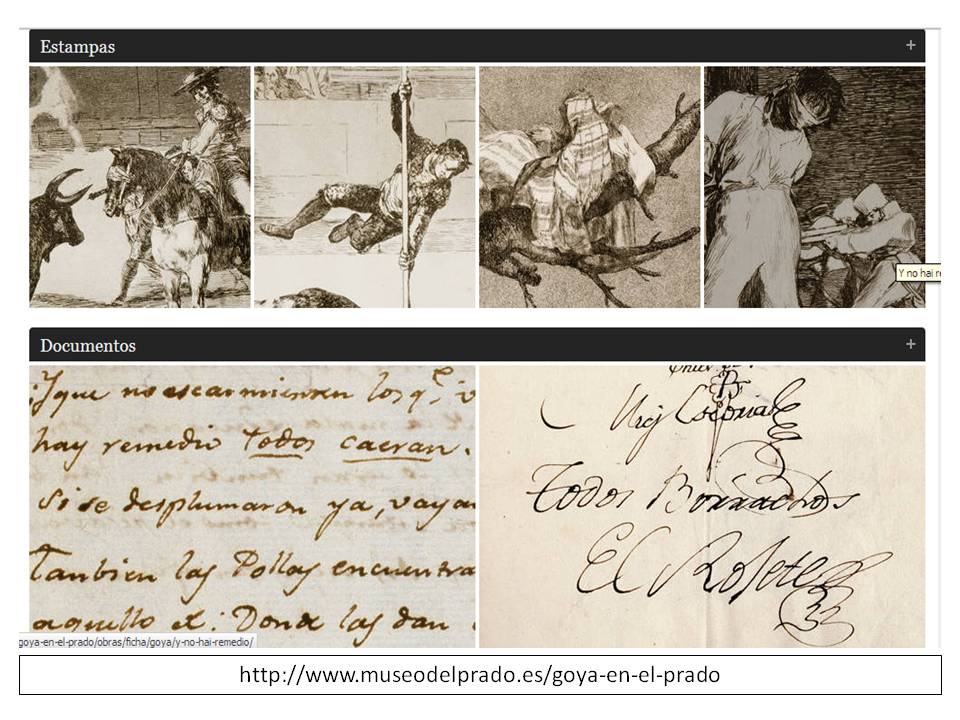 Estampas
+
Y no hai re
Documentos
+
y que no escarmienten los qe. v
hay remedio todos caeran.
Si se desplumaron ya, vayan
Tambien las Pollas encuentra
aquello et: Donde las dan
Todos Borrachos
El Rosete
goya-en-el-prado/obras/ficha/goya/y-no-hai-remedio/
http://www.museodelprado.es/goya-en-el-prado